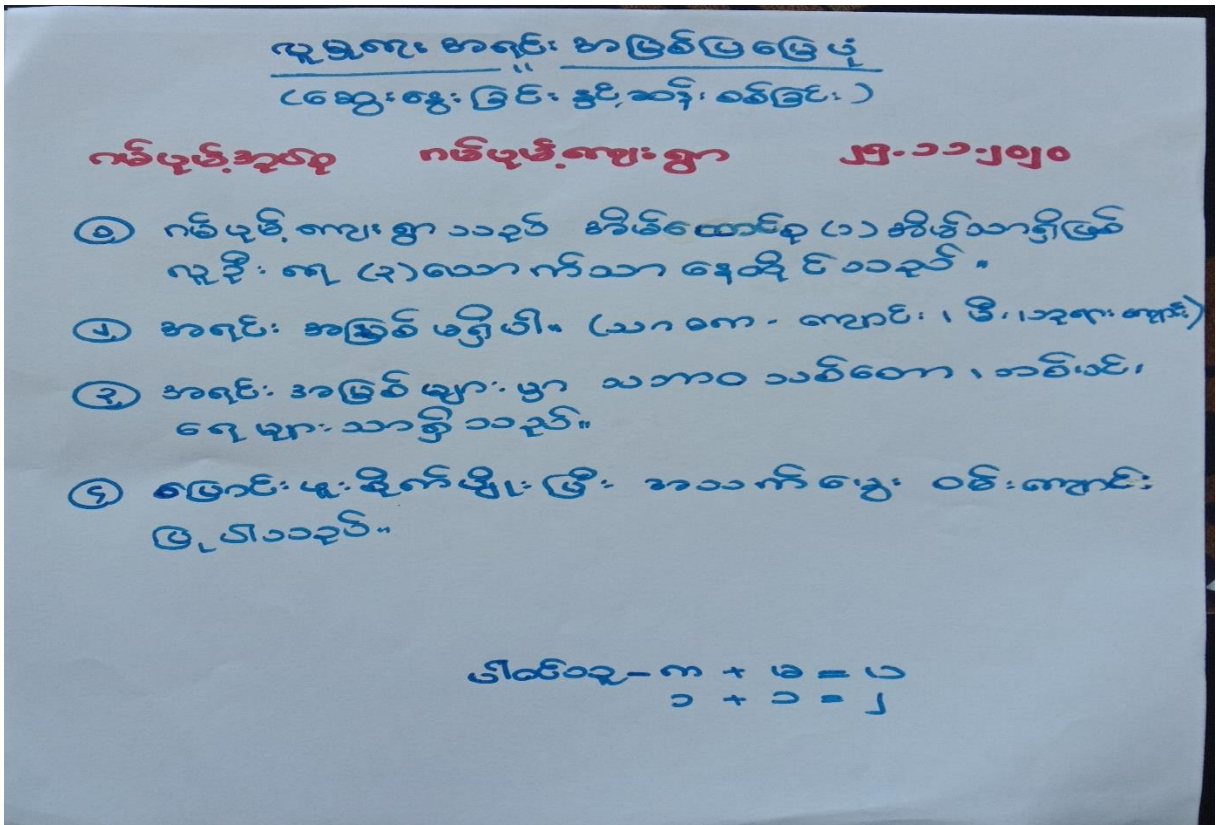 လူမှုရေး အရင်း အမြစ်ပြမြေပုံ
(ဆွေးနွေးခြင်း နှင့် ဆန်းစစ်ခြင်း)
ဂမ်ဖုမ့်အုပ်စု ဂမ်ဖုမ့်ကျေးရွာ ၂၅-၁၁-၂၀၂၀
၁ ဂမ်ဖုမ့်ကျေးရွာသည် အိမ်ထောင်စု (၁) အိမ်သာရှိဖြစ်
လူဦးရေ (၃) ယောက်သာ နေထိုင်သည်။
၂ အရင်း အမြစ် မရှိပါ။ (သာဓက - ကျောင်း၊ မီး၊ ဘုရားကျောင်း)
၃ အရင်း အမြစ်များမှာ သဘာဝ သစ်တော၊ တစ်ပင်၊
ရေများသာရှိသည်။
၄ ပြောင်းဖူးစိုက်မျိုးပြီး အသက်မွေး ဝမ်းကျောင်း
ပြုပါသည်။
ပါဝင်သူ - ကျ + မ = ပ
၁ + ၁ = ၂